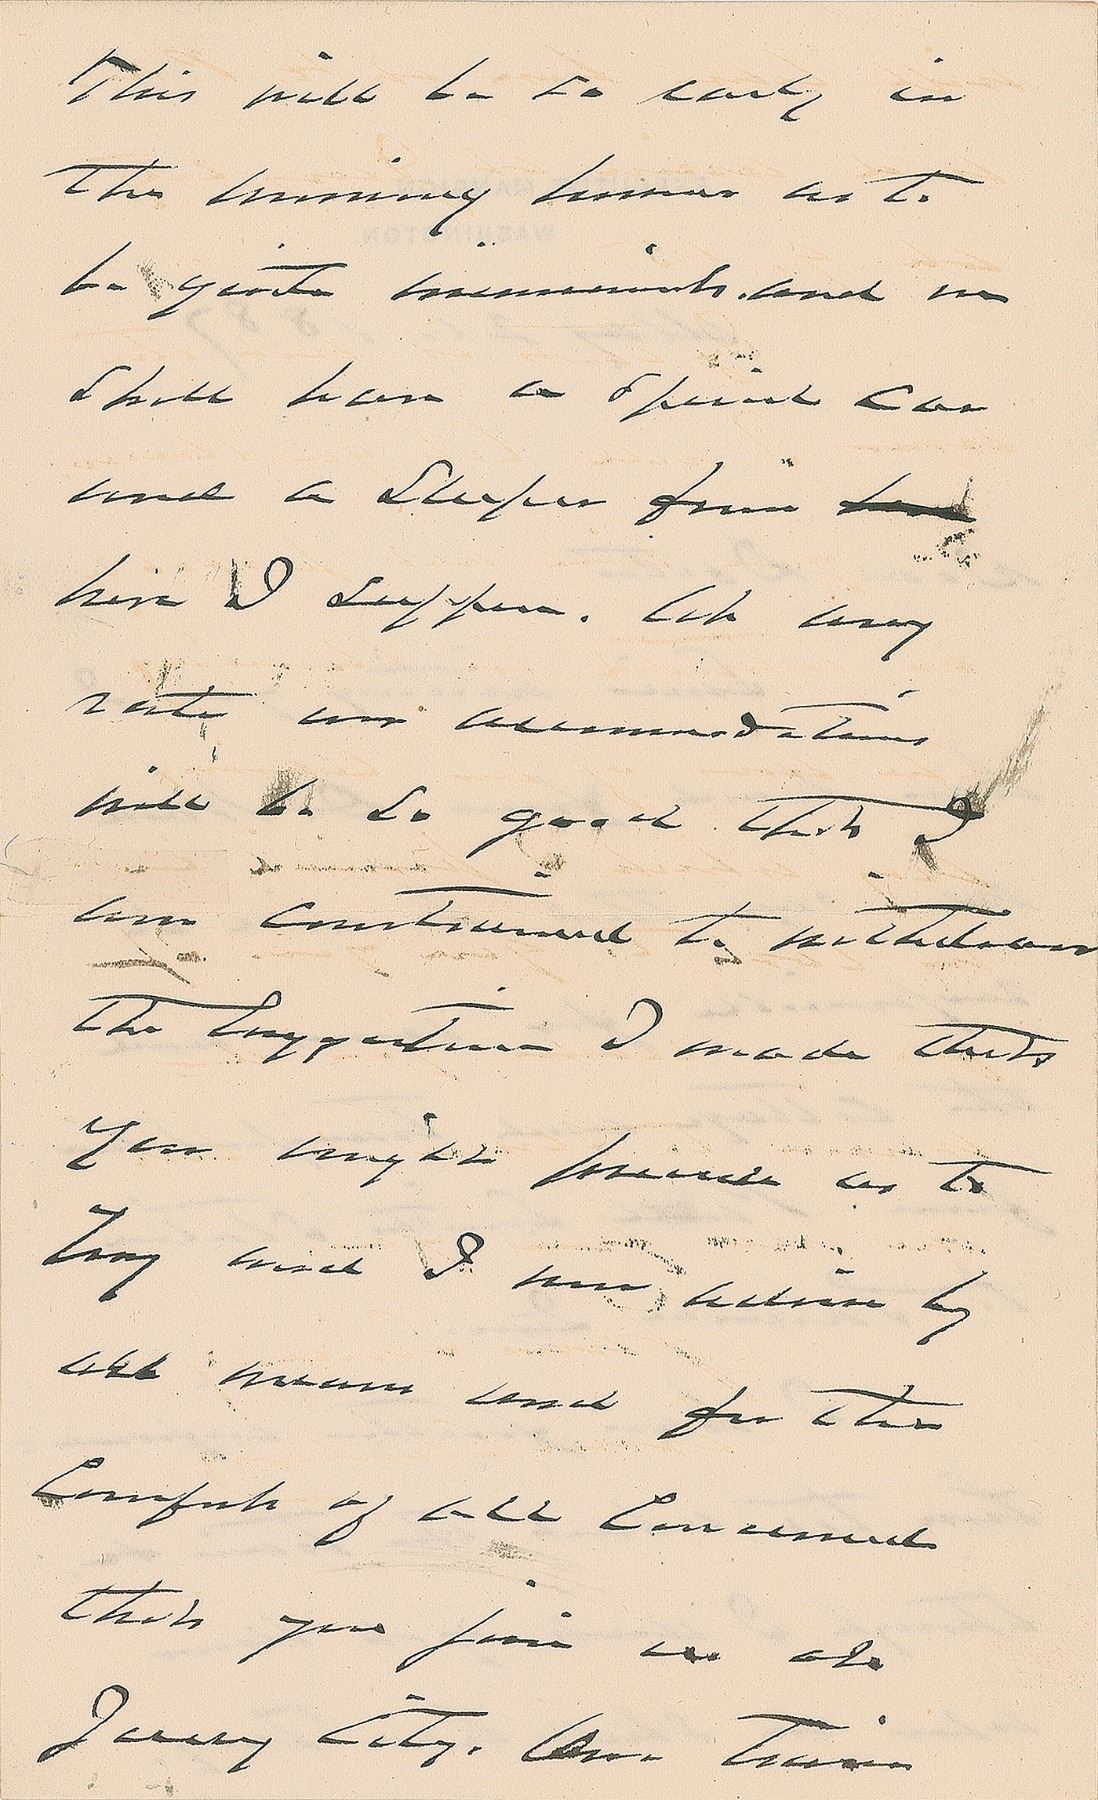 This will be so early in
the morning hours as to
be quite convenient, and we
shall have a special car
and a sleeper from
here I suppose. At any
rate our accommodations
will be so good that I
am constrained to withdraw
the suggestion I made that
you might precede us to
Troy and I now advise by
all means and for the
Comfort of all Concerned
that you join us at
Jersey City. Our train